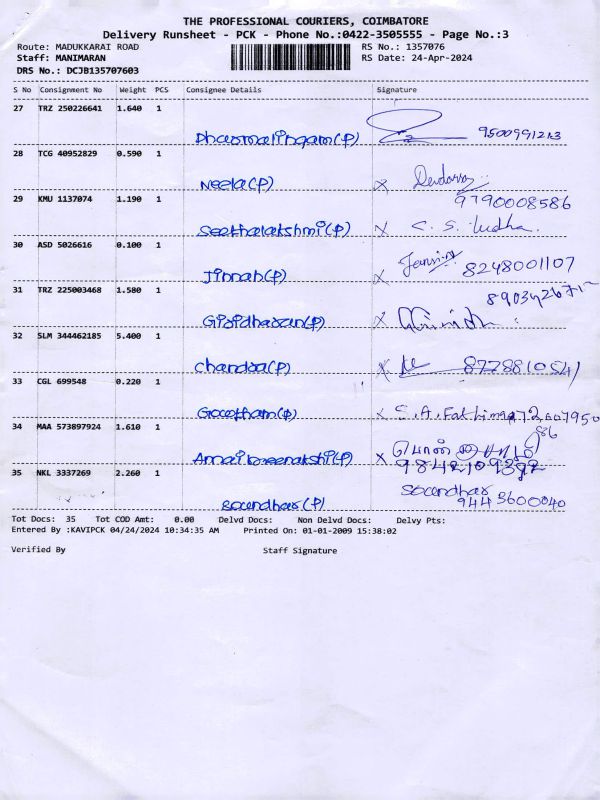 THE PROFESSIONAL COURIERS, COIMBATORE
Delivery Runsheet - PCK - Phone No.:0422-3505555 - Page No.:3
Route: MADUKKARAI ROAD RS No.: 1357076
Staff: MANIMARAN RS Date: 24-Apr-2024
DRS No.: DCJB135707603
S No Consignment No Weight PCS Consignee Details Signature
27 TRZ 250226641 1.640 1
Dharmalingam(P) 9500991213
28 TCG 40952829 0.590 1
Neela(P) x
29 KMU 1137074 1.190 1 9790008586
Seethalakshmi(P) x C. S. Sudha.
30 ASD 5026616 0.100 1
Jinnah(P) x 8248001107
31 TRZ 225003468 1.580 1
Giridharan(P) x
32 SLM 344462185 5.400 1
Chandra(P) x 8778810541
33 CGL 699548 0.220 1
Gowtham(P) x S. A. Fathima
34 MAA 573897924 1.610 1 86
x பொன்
35 NKL 3337269 2.260 1 Soundhar
Soundhar(P) 9443600040
Tot Docs: 35 Tot COD Amt: 0.00 Delvd Docs: Non Delvd Docs: Delvy Pts:
Entered By :KAVIPCK 04/24/2024 10:34:35 AM Printed On: 01-01-2009 15:38:02
Verified By Staff Signature